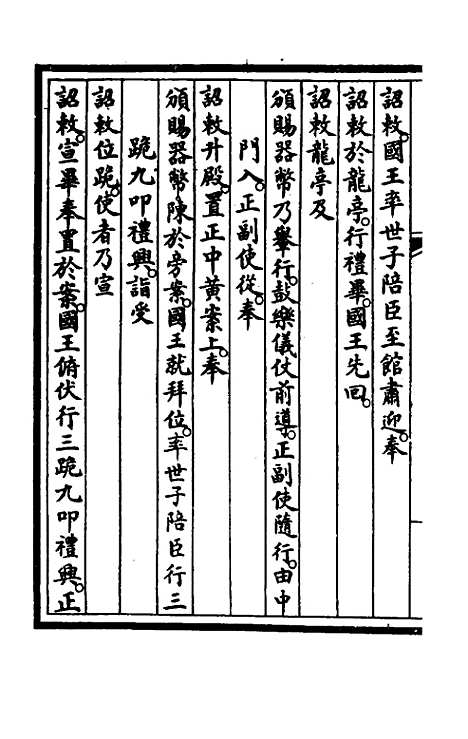 詔敕。國王率世子陪臣至館肅迎。奉
詔敕於龍亭。行禮畢。國王先回。
詔敕龍亭及
頒賜器幣乃舉行。鼓樂儀仗前導。正副使隨行。由中
門入。正副使從。奉
詔敕升殿。置正中黃案上。奉
頒賜器幣陳於旁案。國王就拜位。率世子陪臣行三
跪九叩禮興。詣受
詔敕位跪。使者乃宣
詔敕。宣畢奉置於案。國王俯伏行三跪九叩禮興。正